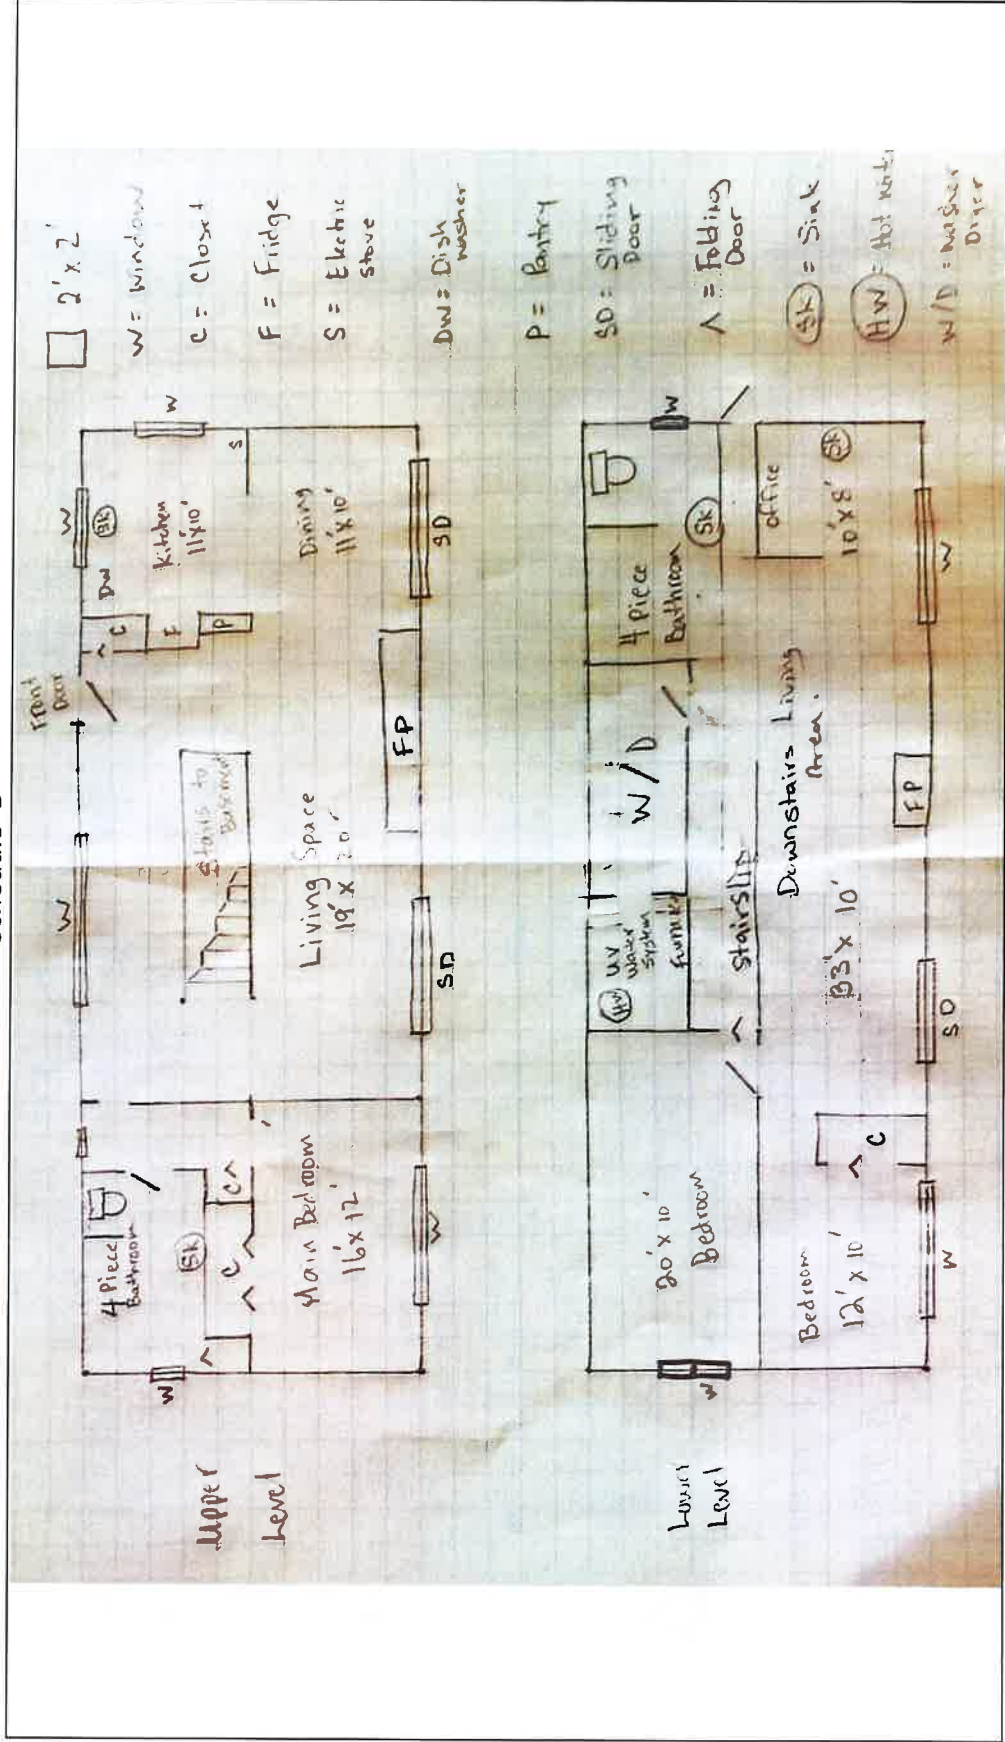 Upper
Level
W
W
Front
Door
W
4 Piece
Bathroom
Sk
C
C
Main Bedroom
16'x12'
W
Stairs to
Basement
Living Space
SD
FP
C
F
P
DW
Sk
Kitchen
11'x10'
W
S
Dining
11'x10'
SD
Lower
Level
W
20'x10'
Bedroom
Bedroom
12'x10'
C
W
HW
UV
Water
System
W/D
Stairs Up
Downstairs Living
Area.
SD
FP
4 Piece
Bathroom
Sk
W
office
10'x8'
Sk
W
2'x2'
W = Window
C = Closet
F = Fridge
S = Electric
Stove
DW = Dish
washer
P = Pantry
SD = Sliding
Door
^ = Folding
Door
Sk = Sink
HW = Hot
W/D = Washer